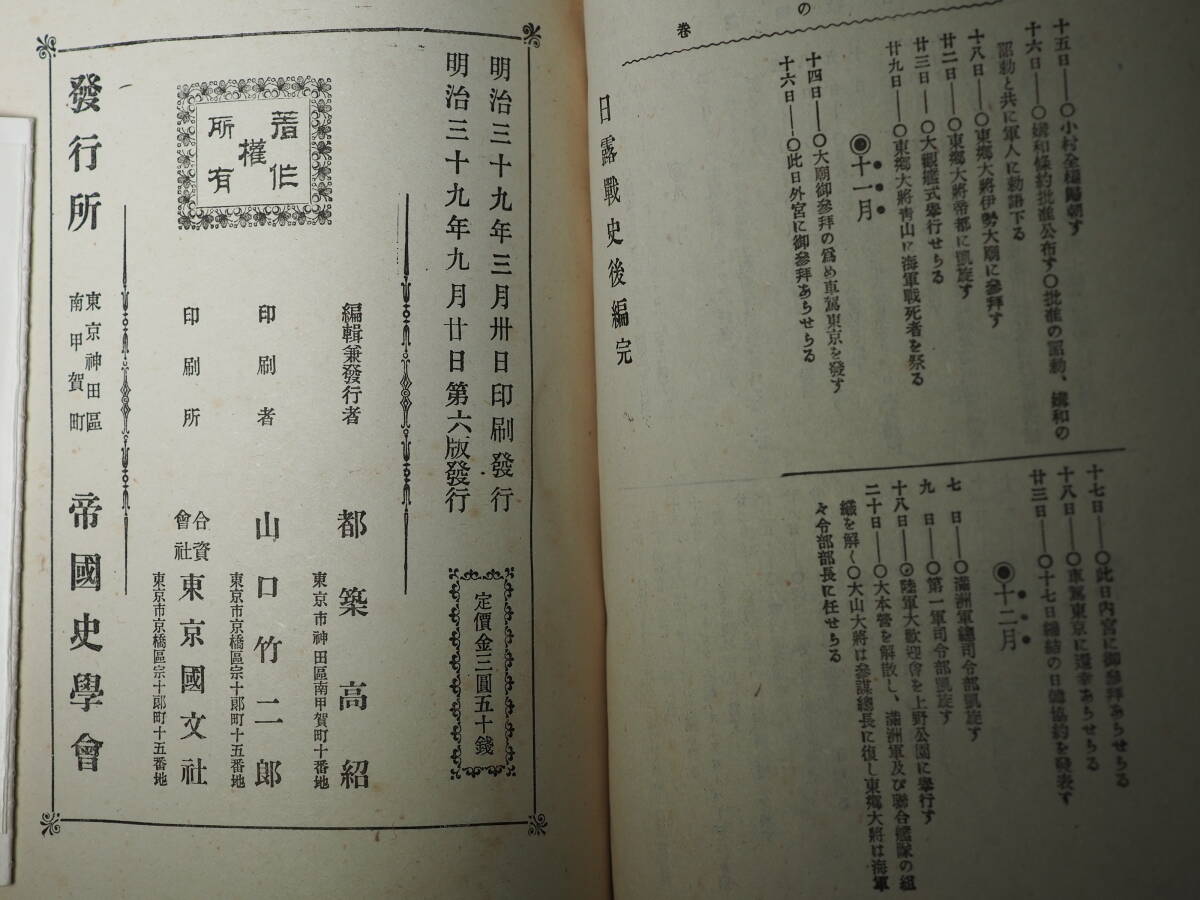 の
巻
十五日――〇小村全權歸朝す
十六日――〇媾和條約批准公布す〇批准の詔勅、媾和の
詔勅と共に軍人に勅語下る
十八日――〇東鄕大將伊勢大廟に參拜す
廿二日――〇東鄕大將帝都に凱旋す
廿三日――〇大觀艦式擧行せらる
廿九日――〇東鄕大將靑山に海軍戰死者を祭る
◉十一月
十四日――〇大廟御參拜の爲め車駕東京を發す
十六日――〇此日外宮に御參拜あらせらる
十七日――〇此日內宮に御參拜あらせらる
十八日――〇車駕東京に還幸あらせらる
廿三日――〇十七日締結の日韓協約を發表す
◉十二月
七　日――〇滿洲軍總司令部凱旋す
九　日――〇第一軍司令部凱旋す
十八日――〇陸軍大歡迎會を上野公園に擧行す
二十日――〇大本營を解散し、滿洲軍及び聯合艦隊の組
織を解く〇大山大將は參謀總長に復し東鄕大將は海軍
々令部部長に任せらる
日露戰史後編完
明治三十九年三月卅日印刷發行
明治三十九年九月廿日第六版發行
定價金三圓五十錢
著作
權
所有
編輯兼發行者　都築高紹
東京市神田區南甲賀町十番地
印刷者　山口竹二郎
東京市京橋區宗十郞町十五番地
印刷所　合資會社　東京國文社
東京市京橋區宗十郞町十五番地
發行所　東京神田區南甲賀町　帝國史學會